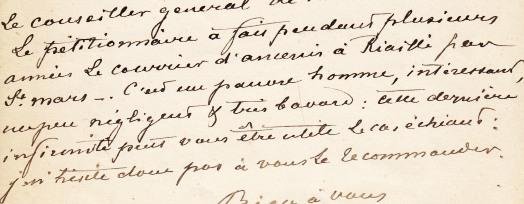 Le conseiller general de
Le pétitionnaire à fait pendant plusieurs
années le courrier d'ancenis à Riaillé par
St. mars -. C'est un pauvre homme, intéressant,
un peu négligent & très bavard : cette dernière
infirmité peut vous être utile le cas échéant :
je n'hésite donc pas à vous le recommander.
Bien à vous